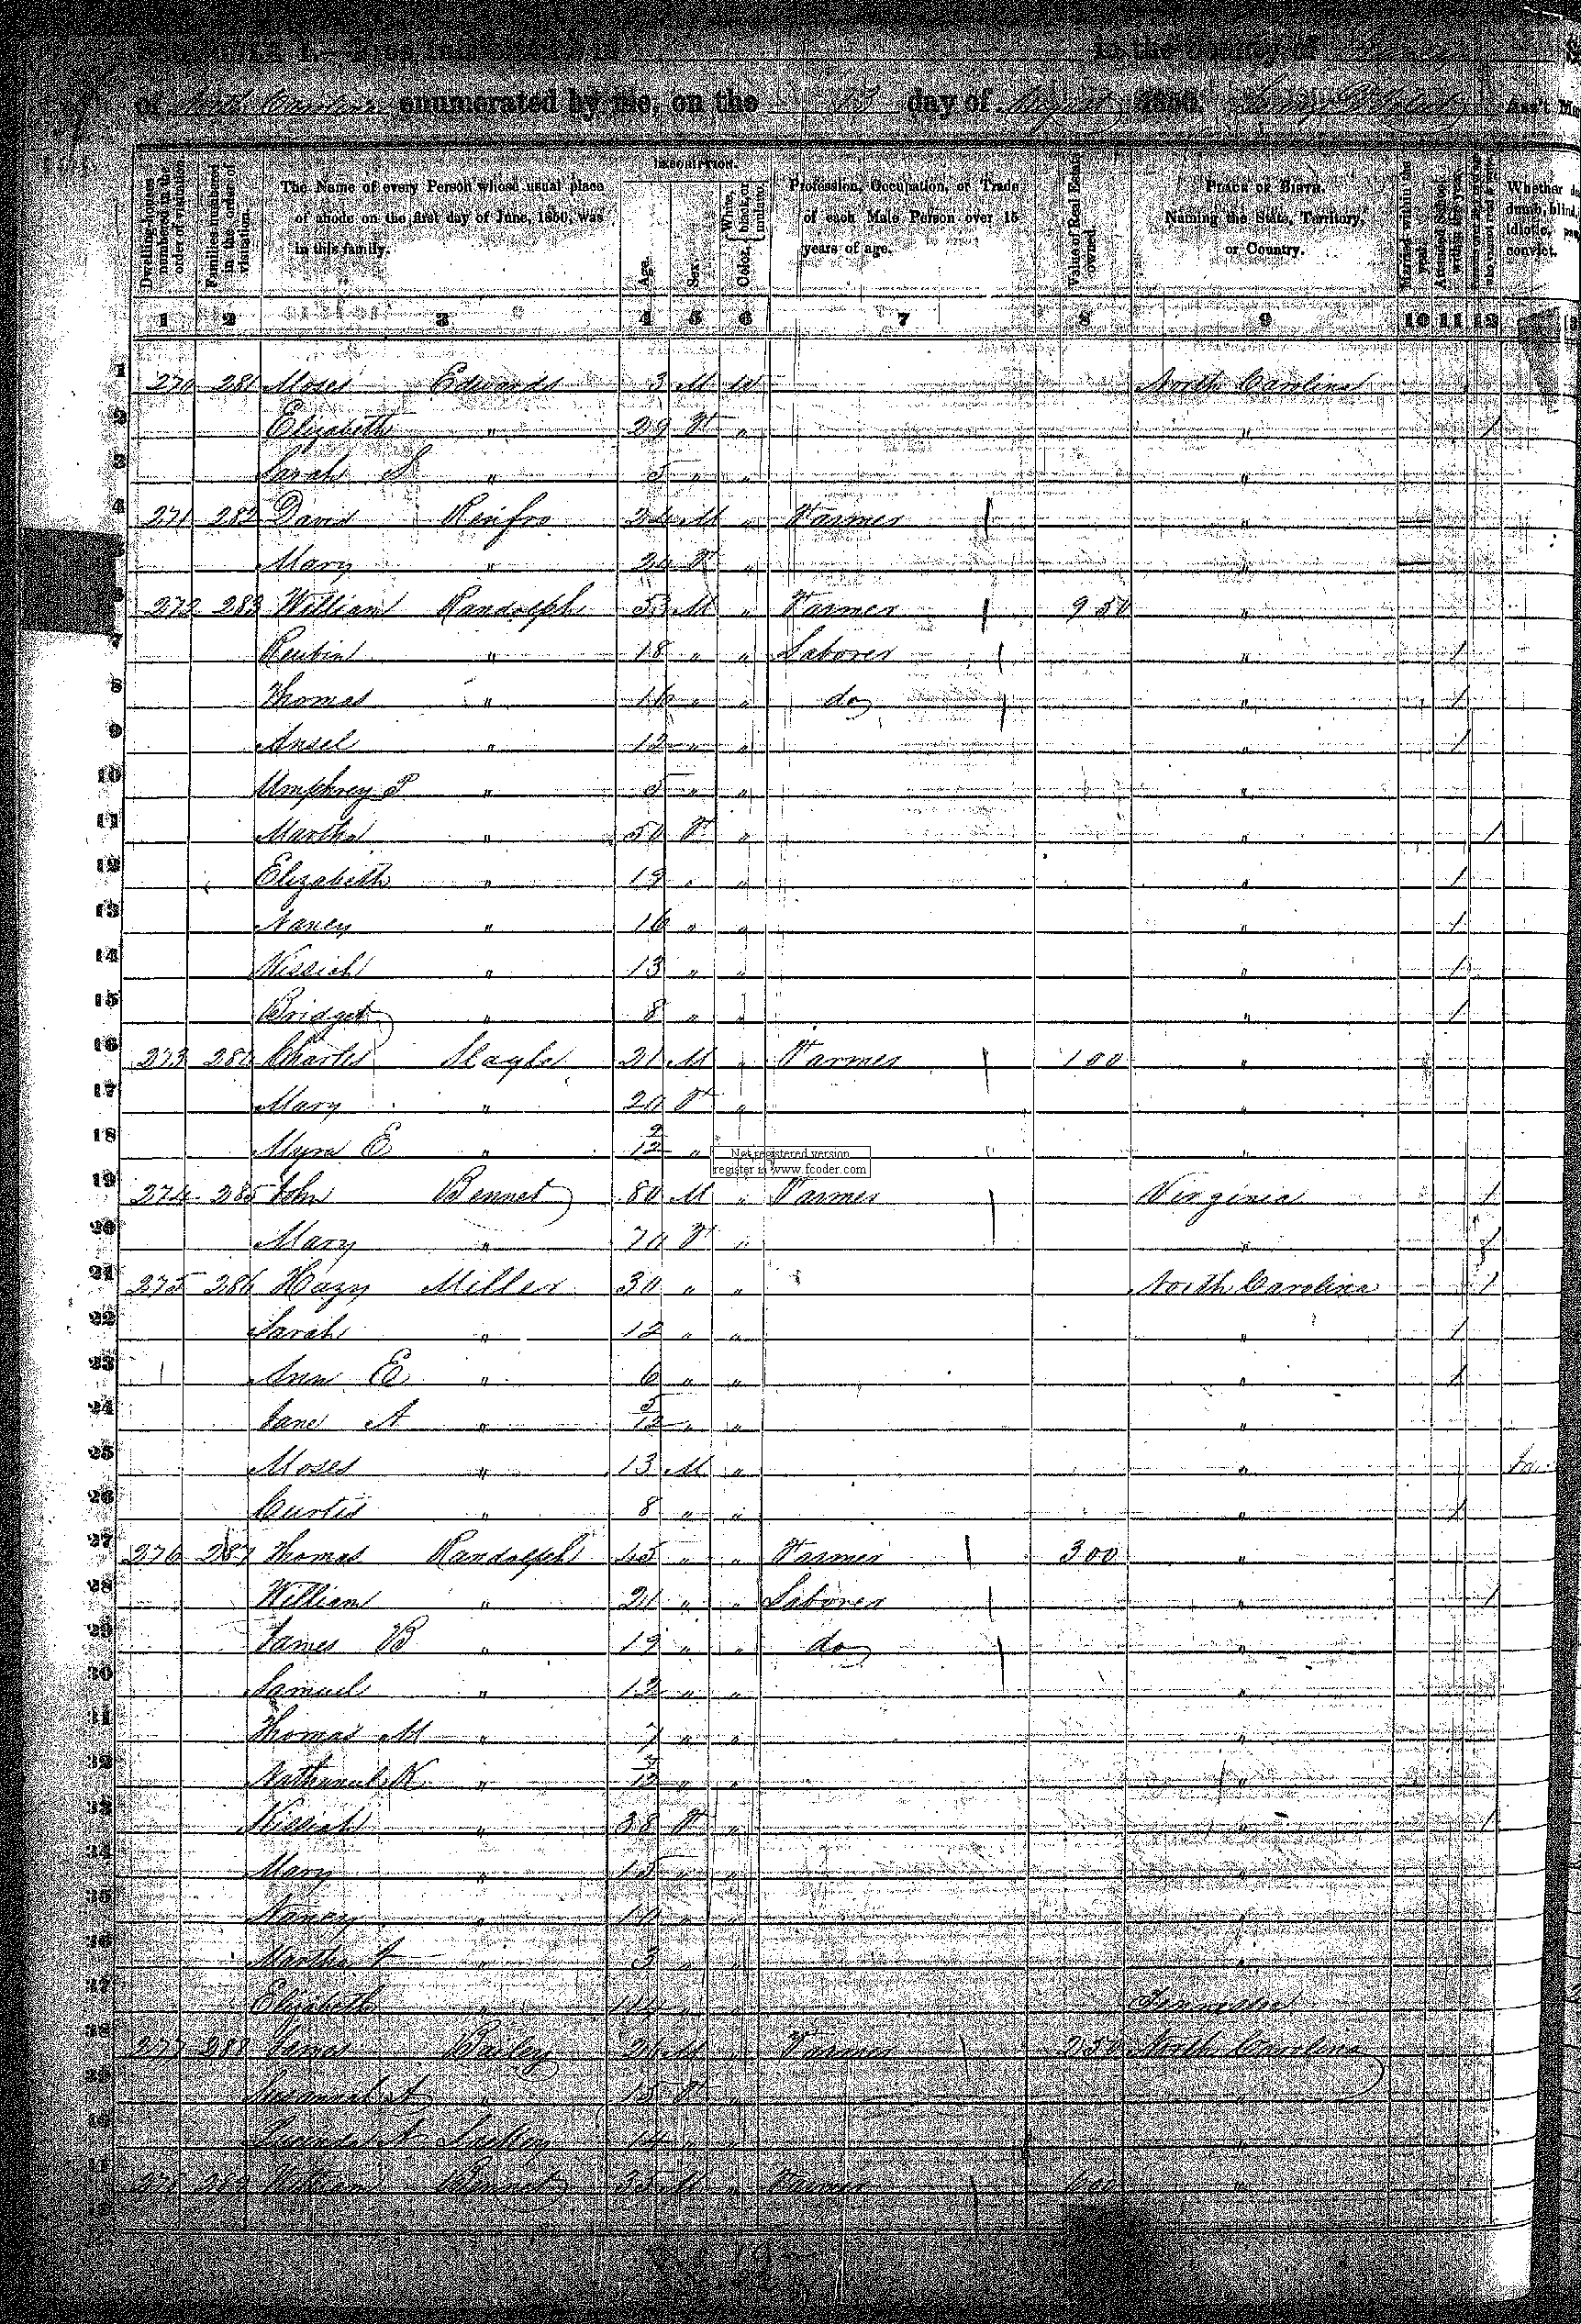 in the County of
of North Carolina enumerated by me, on the 23 day of August 1850. Ass't
DESCRIPTION.
Dwelling-houses numbered in the order of visitation.
Families numbered in the order of visitation.
The Name of every Person whose usual place of abode on the first day of June, 1850, was in this family.
Age.
Sex.
Color, White, black, or mulatto.
Profession, Occupation, or Trade of each Male Person over 15 years of age.
Value of Real Estate owned.
PLACE OF BIRTH. Naming the State, Territory, or Country.
Married within the year.
Attended School within the year.
Whether dumb, blind, idiotic, convict.
1 2 3 4 5 6 7 8 9 10 11 12
1 270 281 Moses Edwards 3 M W North Carolina
2 Elizabeth " 29 F " " 1
3 Sarah S " 5 " " "
4 271 282 David Renfro 24 M " Farmer "
5 Mary " 24 F " "
6 272 283 William Randolph 53 M " Farmer 950 "
7 Reubin " 18 " " Laborer " 1
8 Thomas " 16 " " do " 1
9 Ansel " 12 " " " 1
10 Umphrey P " 5 " " "
11 Martha " 50 F " " 1
12 Elizabeth " 19 " " " 1
13 Nancy " 16 " " " 1
14 " 13 " " " 1
15 Bridget " 8 " " " 1
16 273 284 Charles Slagle 21 M " Farmer 100 "
17 Mary " 20 F " "
18 Myra E " 2/12 " "
Not registered version
register in www.fcoder.com
19 274 285 John Bennet 80 M " Farmer Virginia 1
20 Mary " 70 F " " 1
21 275 286 Hazy Miller 30 " " North Carolina 1
22 Sarah " 12 " " " 1
23 Ann E " 6 " " " 1
24 Jane A " 5/12 " " "
25 Moses " 13 M " "
26 Curtis " 8 " " " 1
27 276 287 Thomas Randolph 45 " " Farmer 300 "
28 William " 21 " " Laborer " 1
29 James B " 19 " " do "
30 Samuel " 12 " " "
31 Thomas M " 7 " " "
32 Nathaniel K " 7/12 " " "
33 Kissiah " 38 F " " 1
34 Mary " 15 " " "
35 Nancy " 10 " "
36 Martha " 3 "
37 Elizabeth " 14 " Tennessee
38 277 288 Bailey 21 M " Farmer 250 North Carolina
39 " 15 F " "
40 Lucinda A 14 "
41 278 289 William Bennet 35 M " Farmer 600 "
42